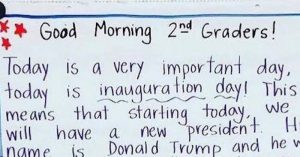 Good Morning 2nd Graders!
Today is a very important day,
today is inauguration day! This
means that starting today, we
will have a new president. H
name is Donald Trump and he w